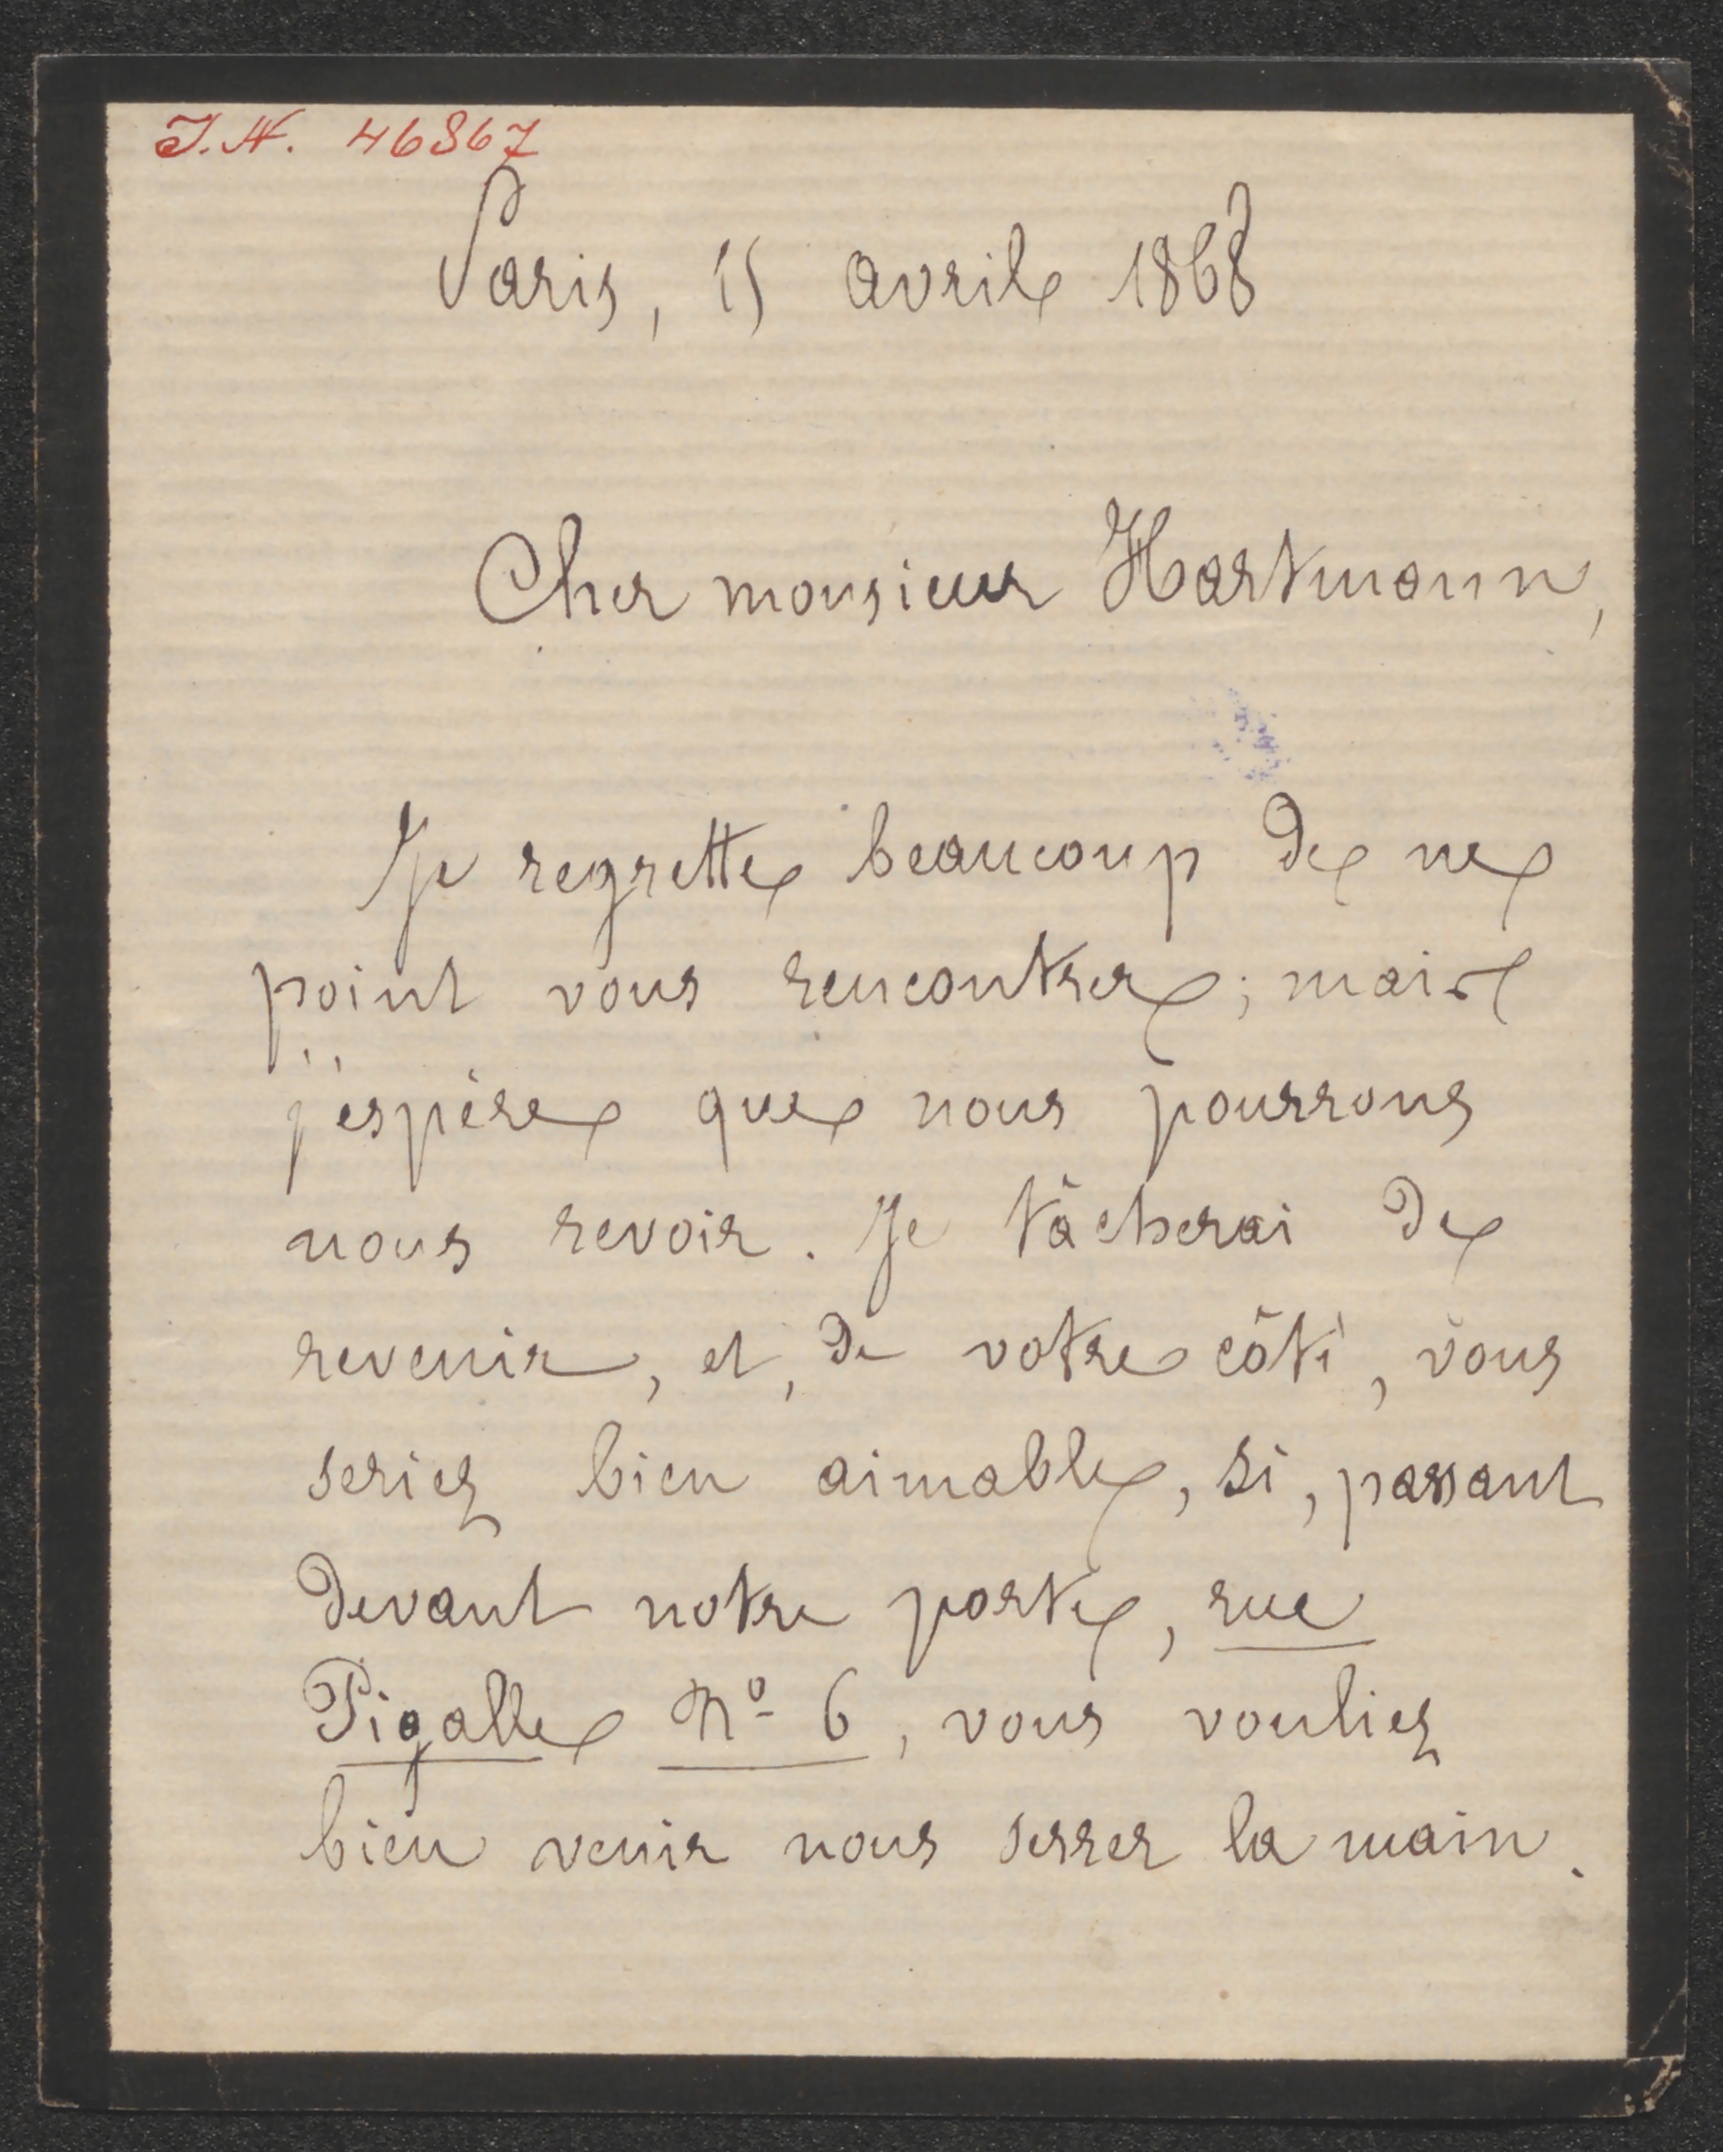 I.N. 46867
Paris, 15 avril 1868
Cher monsieur Hartmann,
Je regrette beaucoup de ne
point vous rencontrer; mais
j'espère que nous pourrons
nous revoir. Je tâcherai de
revenir, et, de votre côté, vous
seriez bien aimable, si, passant
devant notre porte, rue
Pigalle Nº 6, vous vouliez
bien venir nous serrer la main.